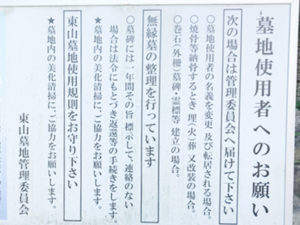 墓地使用者へのお願い
次の場合は管理委員会へ届けて下さい
○墓地使用者の名義を変更及び転居される場合。
○焼骨等納骨するとき 埋(火)葬又改葬の場合。
○巻石(外柵)墓碑・霊標等 建立の場合。
無縁墓の整理を行っています
○墓碑には一年間その旨標示して、連絡のない
場合は法令にもとづき返還等の手続きをします。
★墓地内の美化清掃に、ご協力をお願いします。
東山墓地使用規則をお守り下さい
★墓地内の美化清掃に、ご協力をお願いします。
東山墓地管理委員会